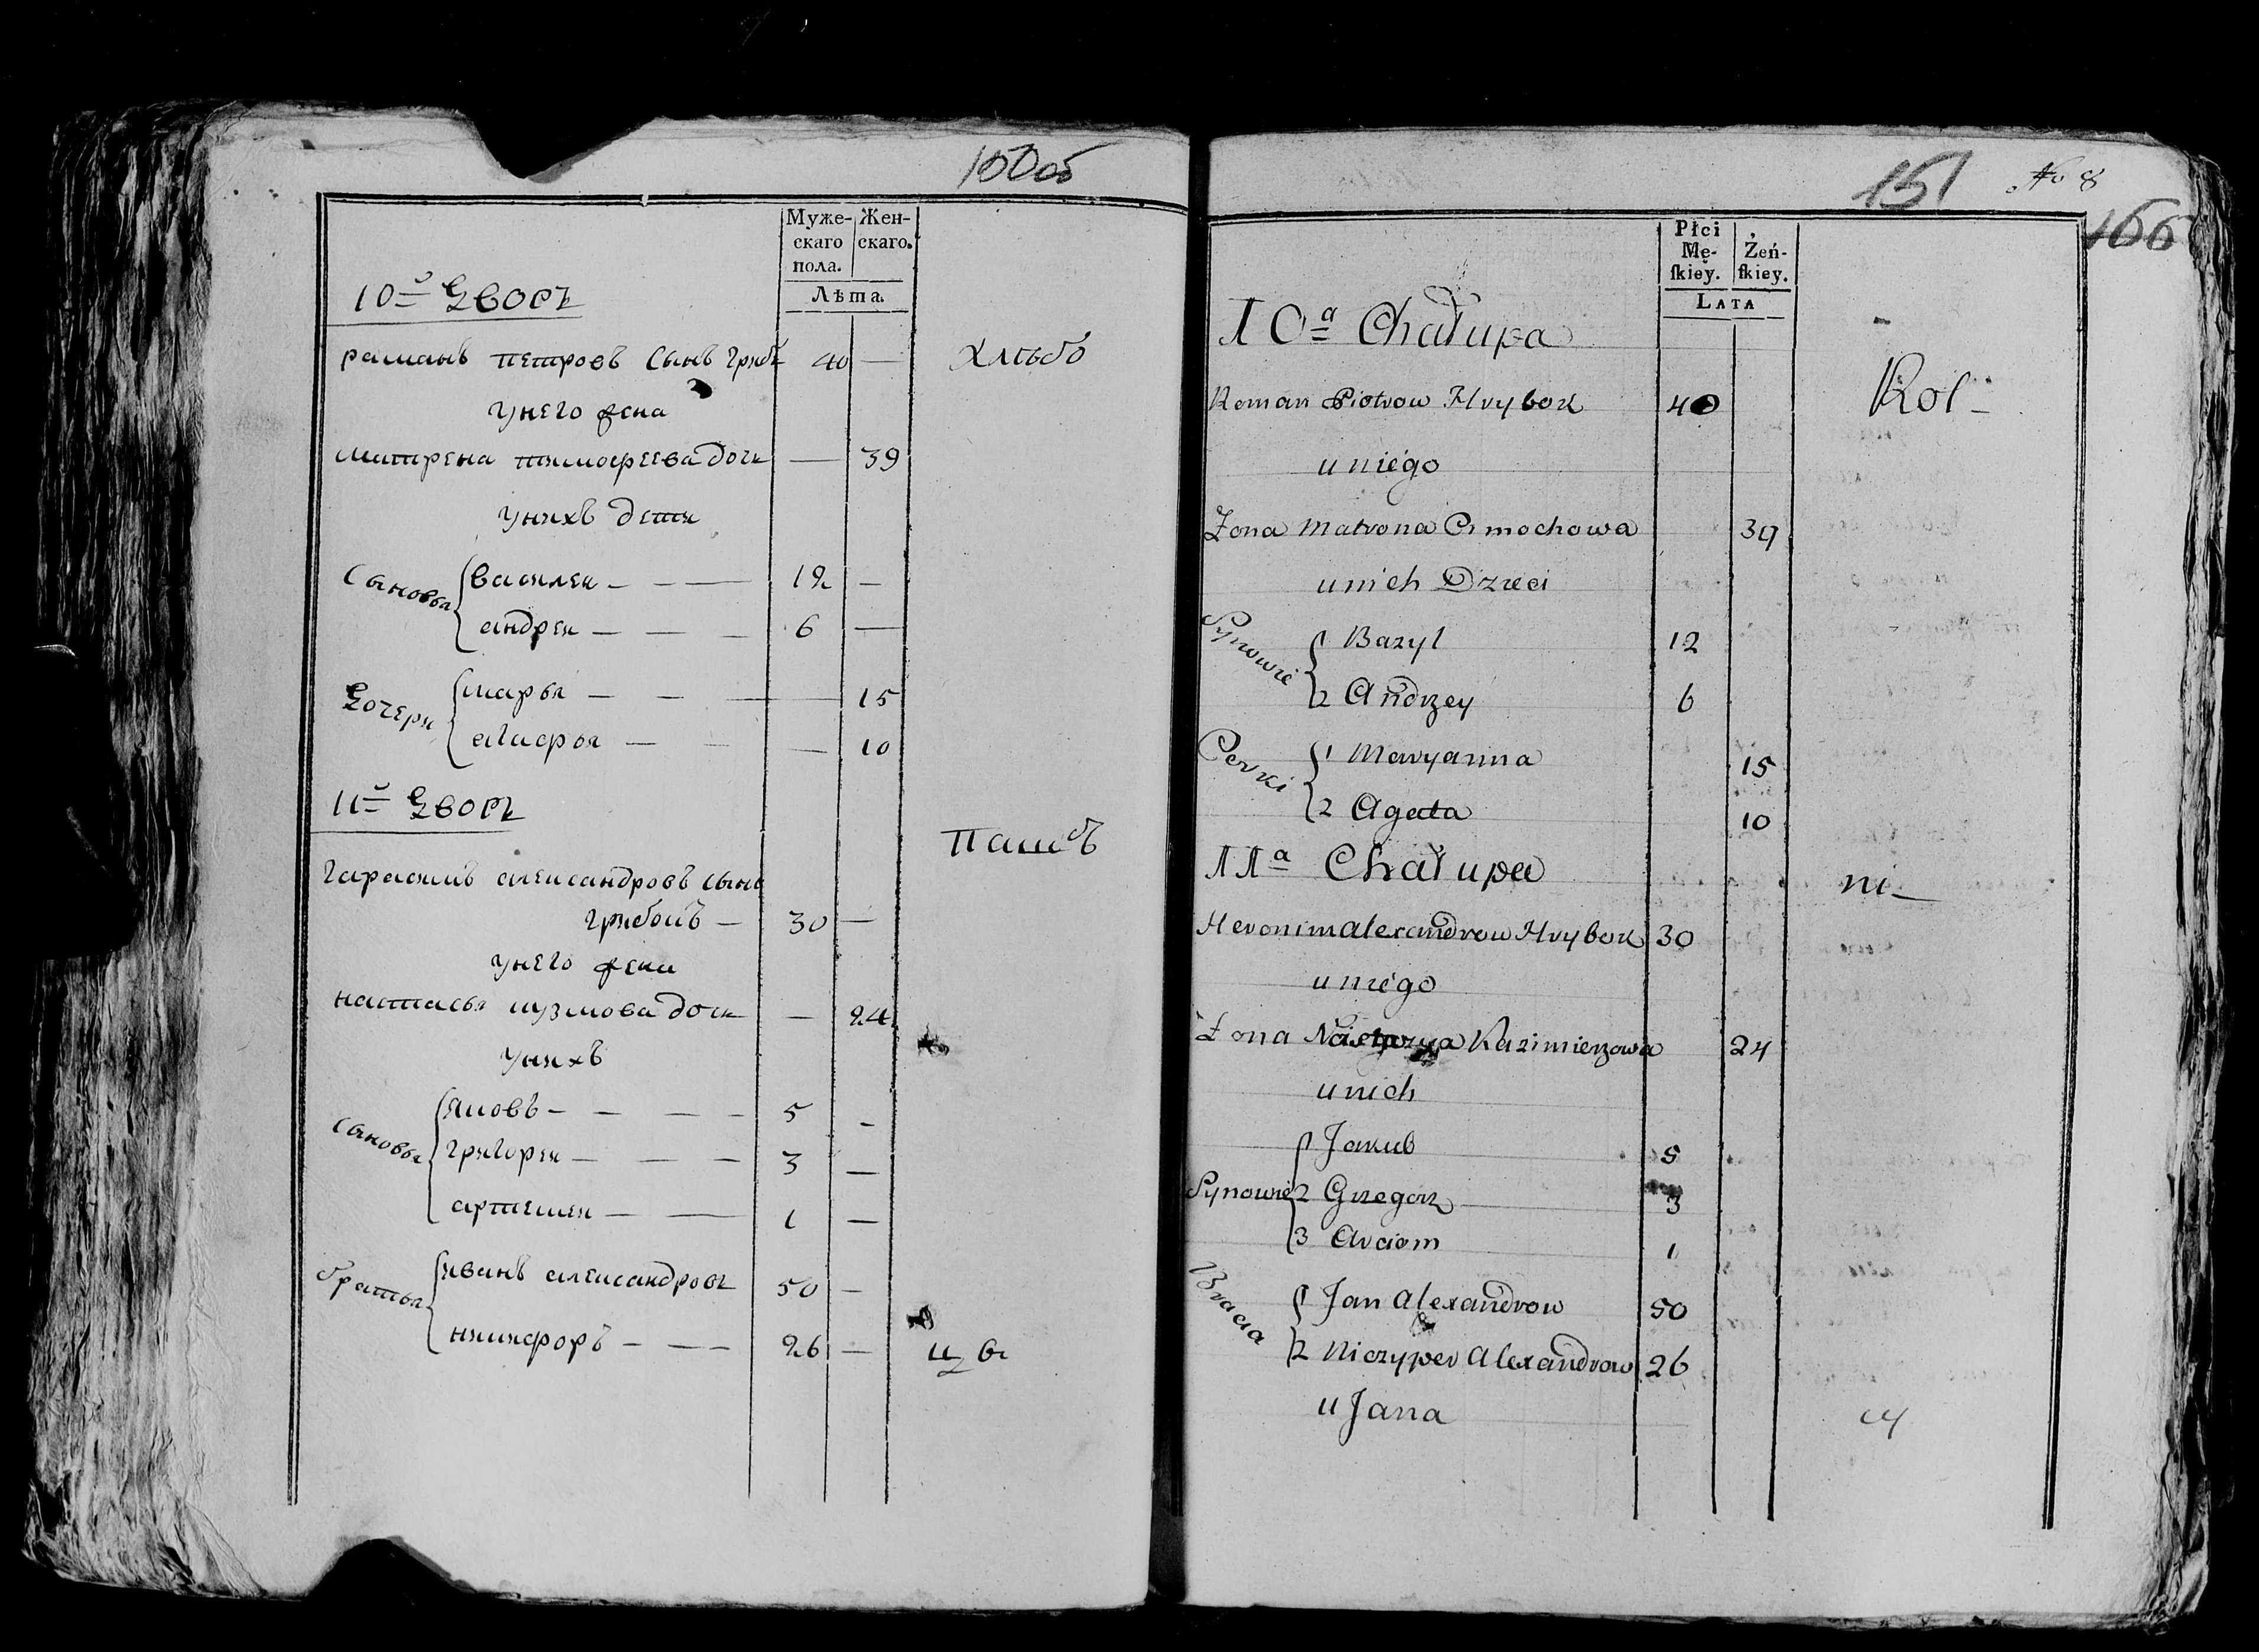 150об
Муже- Жен-
скаго скаго.
пола.
Лѣта.
10й Дворъ
раманъ петровъ сынъ грибк 40 — хлѣбо
унего жена
матрена тимофеева дочь — 39
унихъ дети
Сыновья
василеи — — — 12 —
андреи — — — 6 —
Дочери
марья — — — 15
агафья — — — 10
11й Дворъ
пашъ
гарасимъ александровъ сынъ
грибокъ — 30 —
унего жена
настасья кузмова дочь — 24
унихъ
сыновья
яковъ — — — — 5 —
григореи — — — 3 —
артемеи — — 1 —
братья
иванъ александровъ 50 —
никифоръ — — — 26 —
151 No 8
166
Płci
Mę- Żeń-
skiey. skiey.
LATA
10a Chałupa
Roman Piotrow Hrybok 40 Rol-
uniego
Żona Matrona Cimochowa 39
unich Dzieci
Synowie
Bazyl 12
2 Andrzey 6
Corki
1 Maryanna 15
2 Agata 10
11a Chałupa
ni-
Heronim Alexandrow Hrybok 30
uniego
Żona Kazimierzowa 24
unich
Synowie
Jakub 5
2 Grzegorz 3
3 Arciom 1
Bracia
Jan Alexandrow 50
2 Niczyper Alexandrow 26
u Jana